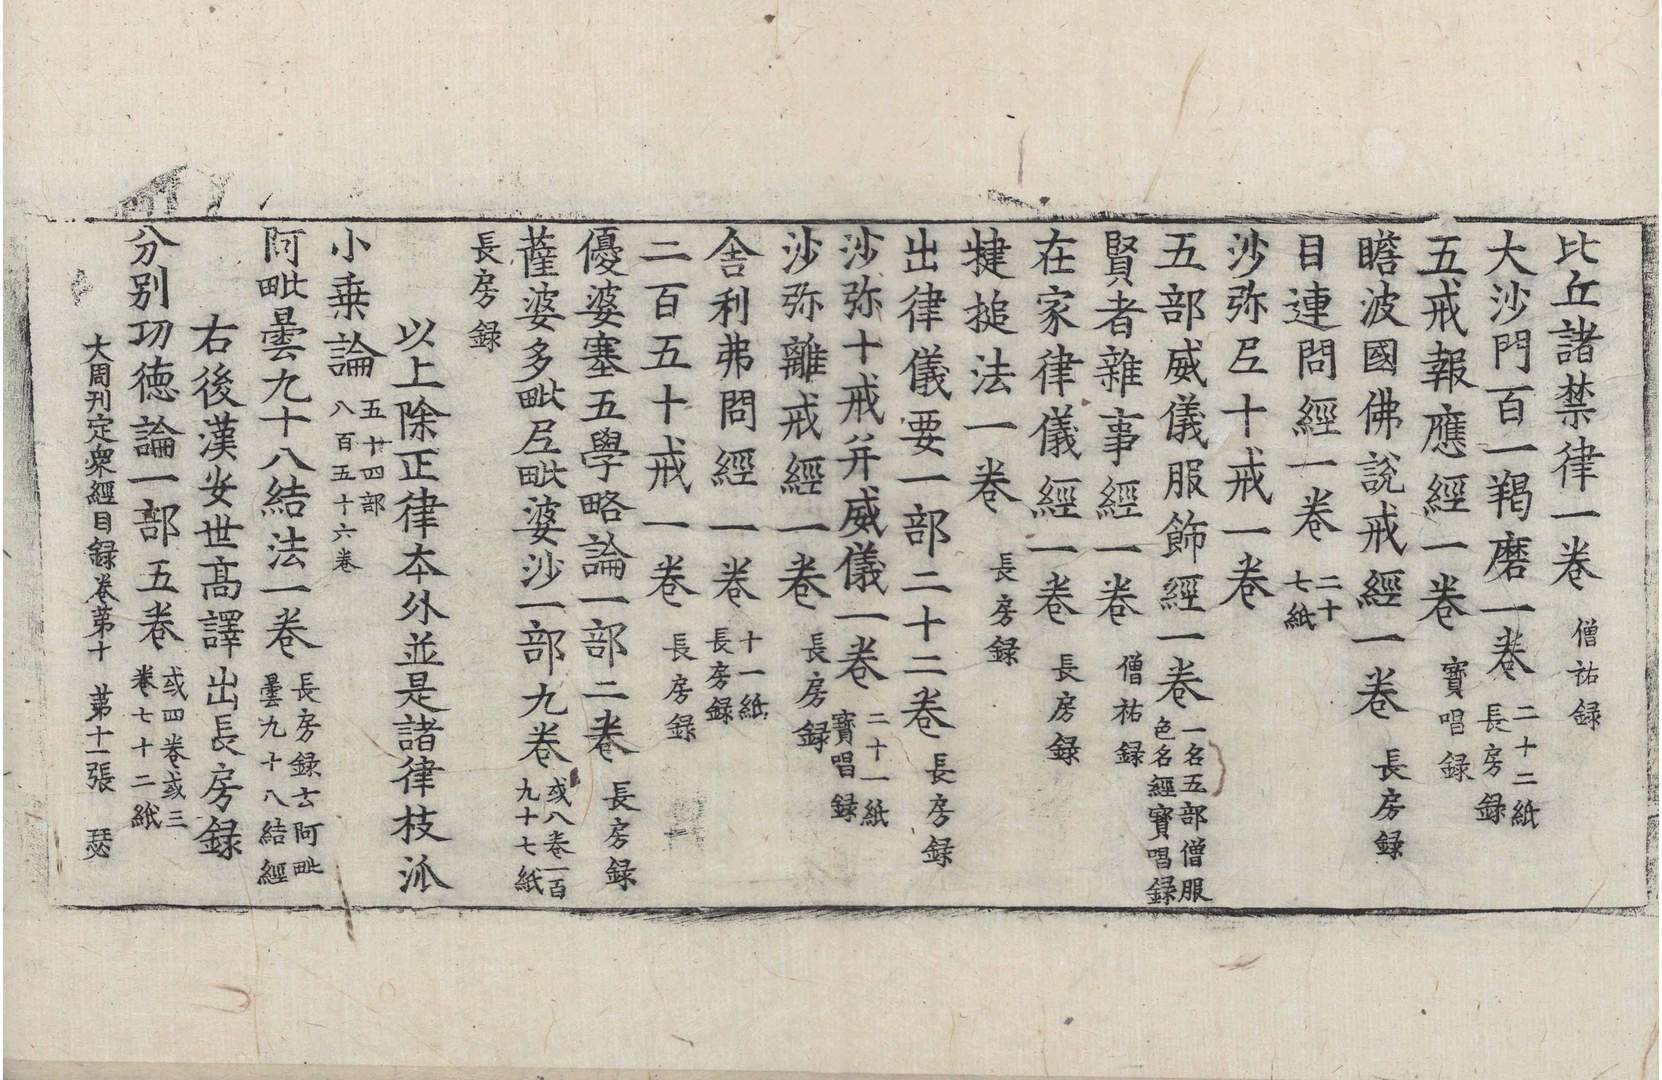 比丘諸禁律一卷 僧祐録
大沙門百一羯磨一卷 二十二紙 長房録
五戒報應經一卷 寳唱録
瞻波國佛説戒經一卷 長房録
目連問經一卷 二十七紙
沙弥尼十戒一卷
五部威儀服飾經一卷 一名五部僧服色名經寳唱録
賢者雜事經一卷 僧祐録
在家律儀經一卷 長房録
揵搥法一卷 長房録
出律儀要一部二十二卷 長房録
沙弥十戒并威儀一卷 二十一紙 寳唱録
沙弥離戒經一卷 長房録
舎利弗問經一卷 十一紙 長房録
二百五十戒一卷 長房録
優婆塞五學略論一部二卷 長房録
薩婆多毗尼毗婆沙一部九卷 或八卷一百九十七紙
長房録
以上除正律本外並是諸律枝派
小乗論 五十四部 八百五十六卷
阿毗曇九十八結法一卷 長房録云阿毗曇九十八結經
右後漢安世高譯出長房録
分别功徳論一部五卷 或四卷或三卷七十二紙
大周刊定衆經目録卷苐十 苐十一張 瑟